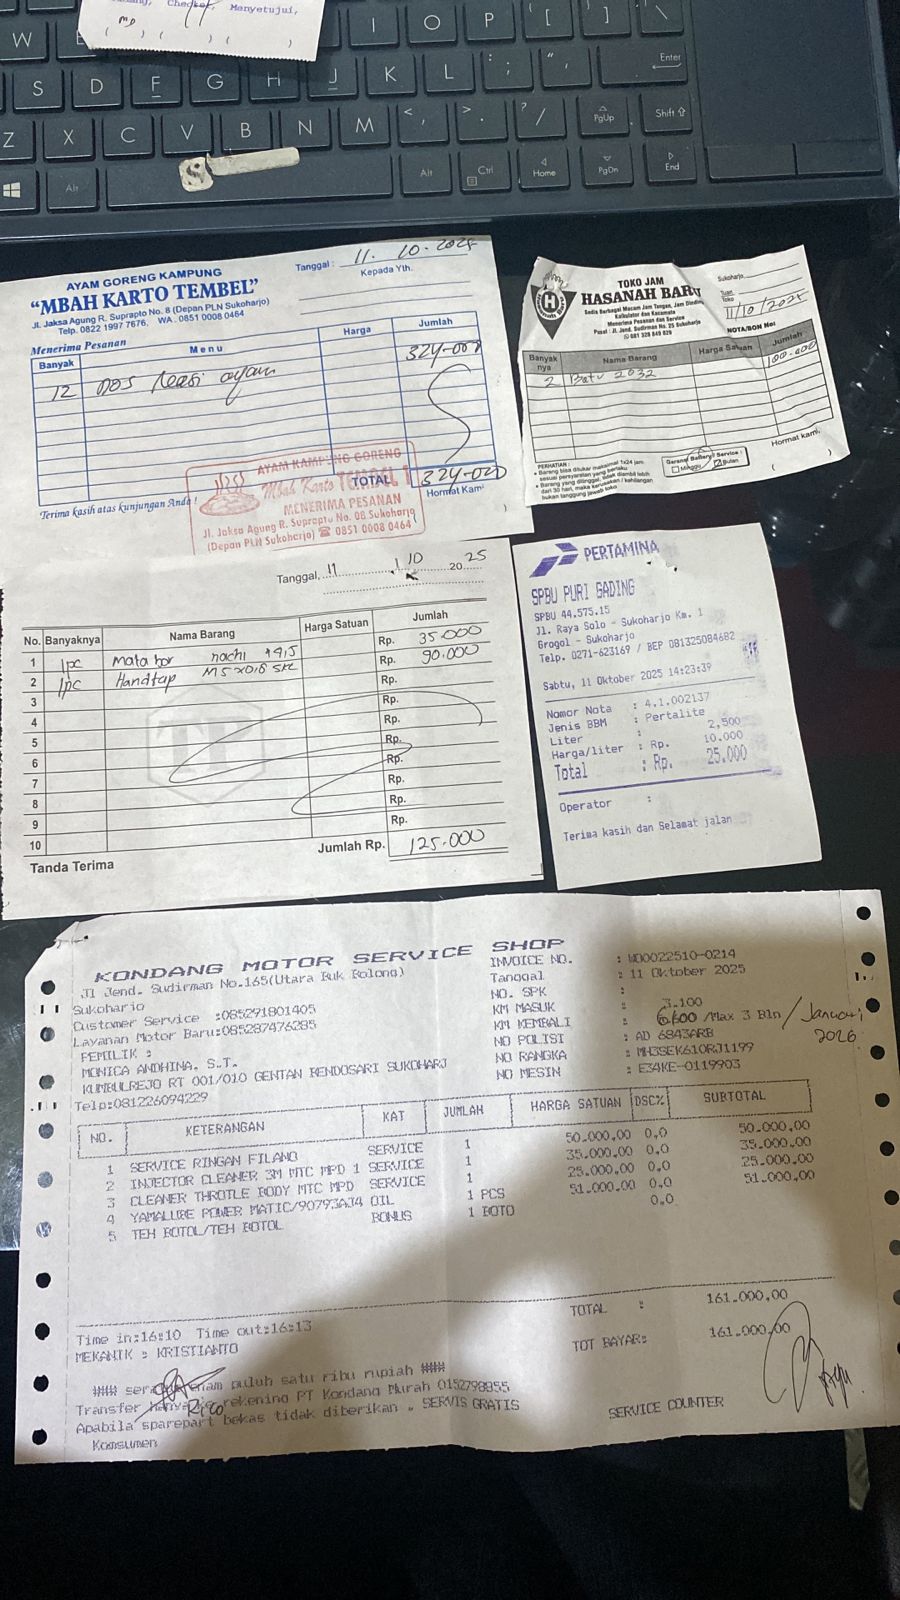 Checker, Menyetujui,
W I O P { [ } ]
S D F G H J K L : ; " ' Enter
Z X C V B N M < , > . ? / PgUp Shift
Alt Alt Ctrl Home PgDn End
AYAM GORENG KAMPUNG
"MBAH KARTO TEMBEL"
Jl. Jaksa Agung R. Suprapto No. 8 (Depan PLN Sukoharjo)
Telp. 0822 1997 7676, WA. 0851 0008 0464
Tanggal : 11. 10. 2025
Kepada Yth.
Menerima Pesanan
Banyak Menu Harga Jumlah
12 DOS nasi ayam 324.000
TOTAL 324.000
Terima kasih atas kunjungan Anda !
Hormat Kami
AYAM KAMPUNG GORENG
Mbah Karto TEMBEL 1
MENERIMA PESANAN
Jl. Jaksa Agung R. Suprapto No. 08 Sukoharjo
(Depan PLN Sukoharjo) ☎ 0851 0008 0464
TOKO JAM
HASANAH BARU
Sedia Berbagai Macam Jam Tangan, Jam Dinding
Kalkulator dan Kacamata
Menerima Pesanan dan Service
Pusat : Jl. Jend. Sudirman No. 25 Sukoharjo
081 328 849 829
Sukoharjo,
Tuan
Toko
11/10/2025
NOTA/BON No:
Banyak nya Nama Barang Harga Satuan Jumlah
2 Batu 2032 100.000
PERHATIAN :
Barang bisa ditukar maksimal 1x24 jam
sesuai persyaratan yang berlaku
Barang yang ditinggal, tidak diambil lebih
dari 30 hari, maka kerusakan / kehilangan
bukan tanggung jawab toko
Garansi Battery / Service :
Minggu Bulan
Hormat kami,
Tanggal, 11 / 10 20 25
No. Banyaknya Nama Barang Harga Satuan Jumlah
1 1pc Mata bor nachi Rp. 35.000
2 1pc Handtap M5x0.8 SKC Rp. 90.000
3 Rp.
4 Rp.
5 Rp.
6 Rp.
7 Rp.
8 Rp.
9 Rp.
10 Rp.
Jumlah Rp. 125.000
Tanda Terima
PERTAMINA
SPBU PURI GADING
SPBU 44.575.15
Jl. Raya Solo - Sukoharjo Km. 1
Grogol - Sukoharjo
Telp. 0271-623169 / BEP 081325084682
Sabtu, 11 Oktober 2025 14:23:39
Nomor Nota : 4.1.002137
Jenis BBM : Pertalite
Liter : 2,500
Harga/liter : Rp. 10.000
Total : Rp. 25.000
Operator :
Terima kasih dan Selamat jalan
KONDANG MOTOR SERVICE SHOP
Jl Jend. Sudirman No.165(Utara Buk Bolong)
Sukoharjo
Customer Service :085291801405
Layanan Motor Baru:085287476285
PEMILIK :
MONICA ANDHINA, S.T.
KUMBULREJO RT 001/010 GENTAN BENDOSARI SUKOHARJ
Telp:081226094229
INVOICE NO. : WO0022510-0214
Tanggal : 11 Oktober 2025
NO. SPK :
KM MASUK : 3.100
KM KEMBALI : 6.600 /Max 3 Bln / Januari 2026
NO POLISI : AD 6843ARB
NO RANGKA : MH3SEK610RJ1199
NO MESIN : E34KE-0119903
NO. KETERANGAN KAT JUMLAH HARGA SATUAN DSC% SUBTOTAL
1 SERVICE RINGAN FILANO SERVICE 1 50.000,00 0,0 50.000,00
2 INJECTOR CLEANER 3M MTC MPD 1 SERVICE 1 35.000,00 0,0 35.000,00
3 CLEANER THROTLE BODY MTC MPD SERVICE 1 25.000,00 0,0 25.000,00
4 YAMALUBE POWER MATIC/90793AJ4 OIL 1 PCS 51.000,00 0,0 51.000,00
5 TEH BOTOL/TEH BOTOL BONUS 1 BOTO 0,0
TOTAL : 161.000,00
Time in:16:10 Time out:16:13
TOT BAYAR: 161.000,00
MEKANIK : KRISTIANTO
### enam puluh satu ribu rupiah ###
Transfer hanya rekening PT Kondang Murah 0152798855
Rico
Apabila sparepart bekas tidak diberikan . SERVIS GRATIS
Konsumen
SERVICE COUNTER